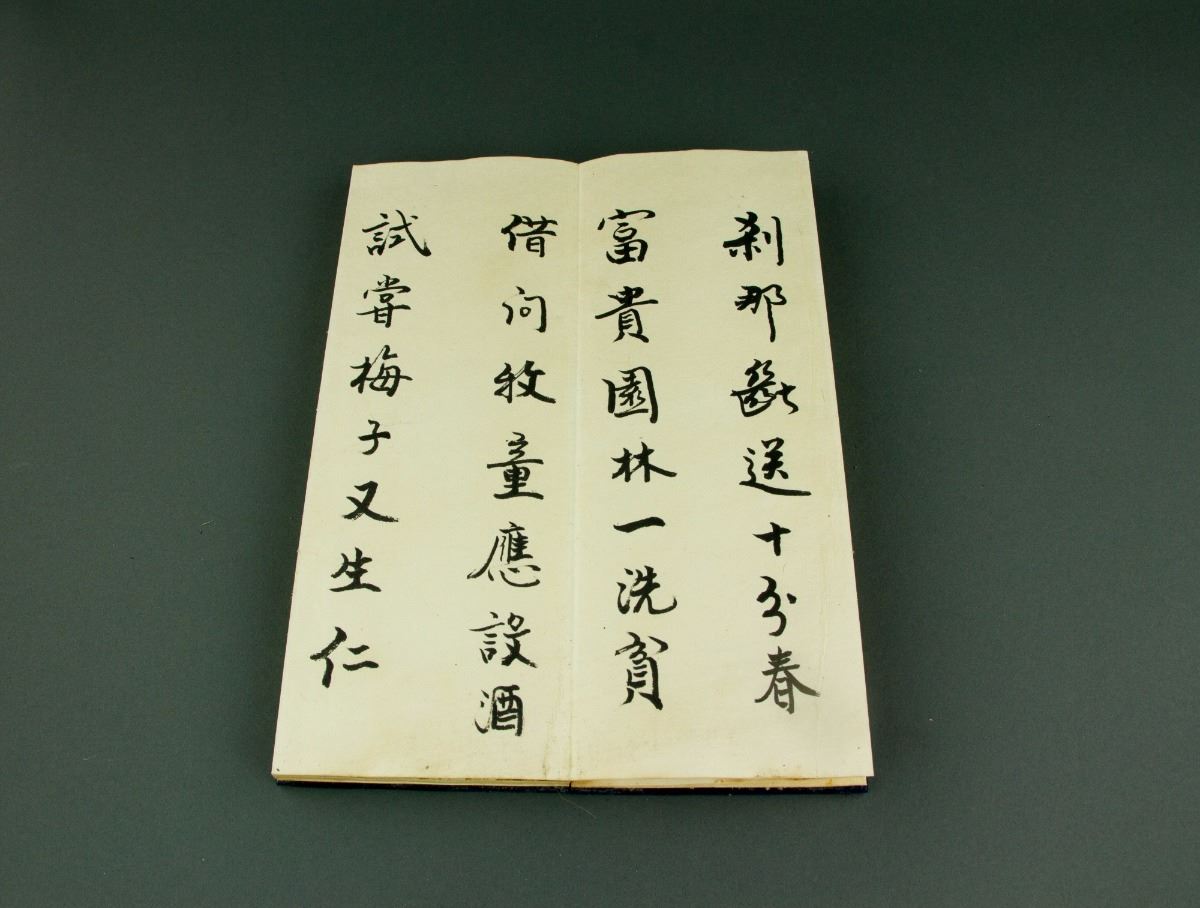 刹那斷送十分春
富貴園林一洗貧
借問牧童應設酒
試甞梅子又生仁